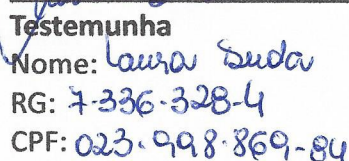 Testemunha
Nome: Laura Duda
RG: 7.336.328-4
CPF: 023.998.869-84